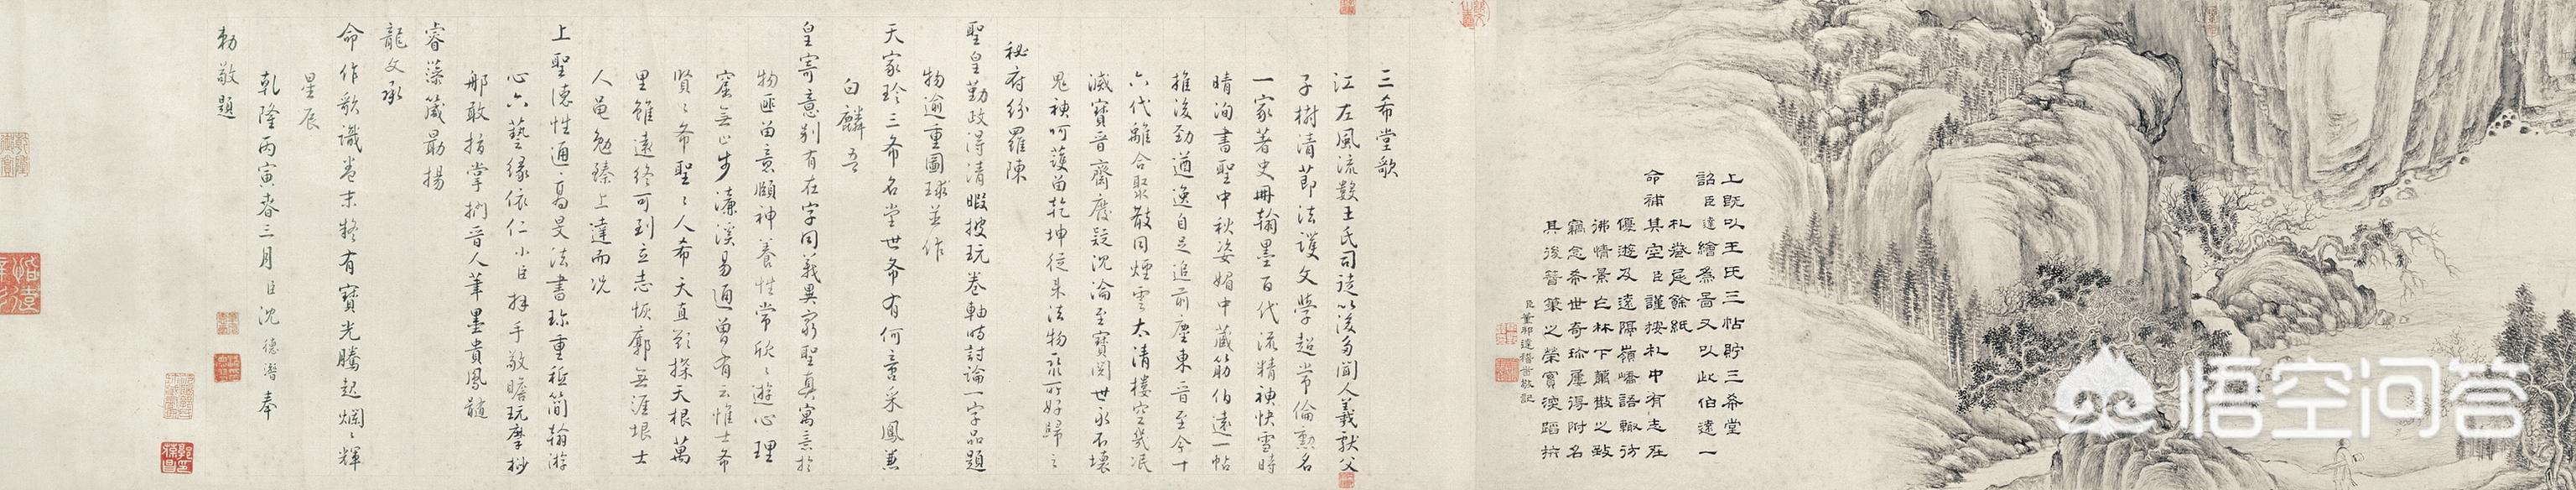 上既以王氏三帖貯三希堂
詔臣達繪為啚又以此伯遠一
札卷尾餘紙
命補其空臣謹按札中有志在
優遊及遠隔嶺嶠語輙彷
彿情景亡林下蕭散之致
竊念希世奇珍屢得附名
其後簪筆之榮實深蹈抃
臣董邦達稽首敬記
三希堂歌
江左風流數王氏司徒以後多聞人羲獻父
子樹清節法護文學超常倫勳名
一家著史冊翰墨百代流精神快雪時
晴洵書聖中秋姿媚中藏筋伯遠一帖
推後勁遒逸自足追前塵東晉至今十
六代離合聚散同煙雲太清樓空幾泯
滅寶晉齋廢疑沉淪至寶閱世永不壞
鬼神呵護留乾坤從来法物聚所好歸之
秘府紛羅陳
聖皇勤政得清暇披玩卷軸時討論一字品題
物逾重圖球並作
天家珍三希名堂世希有何言采鳳兼
白麟吾
皇寄意别有在字同義異窮聖真寓意於
物匪留意頤神養性常欣欣遊心理
窟無止步濂溪易通曾有云惟士希
賢賢希聖聖人希天直欲探天根萬
里雖遠終可到立志恢廓無涯垠士
人黽勉臻上達而况
上聖德性通高旻法書珍重祗簡翰游
心六藝緣依仁小臣拜手敬瞻玩摩挲
那敢指掌捫晉人筆墨貴風髓
睿藻箴勗揚
龍文承
命作歌識卷末擬有寶光騰起爛爛輝
星辰
乾隆丙寅春三月臣沈德潛奉
勅敬題
悟空问答